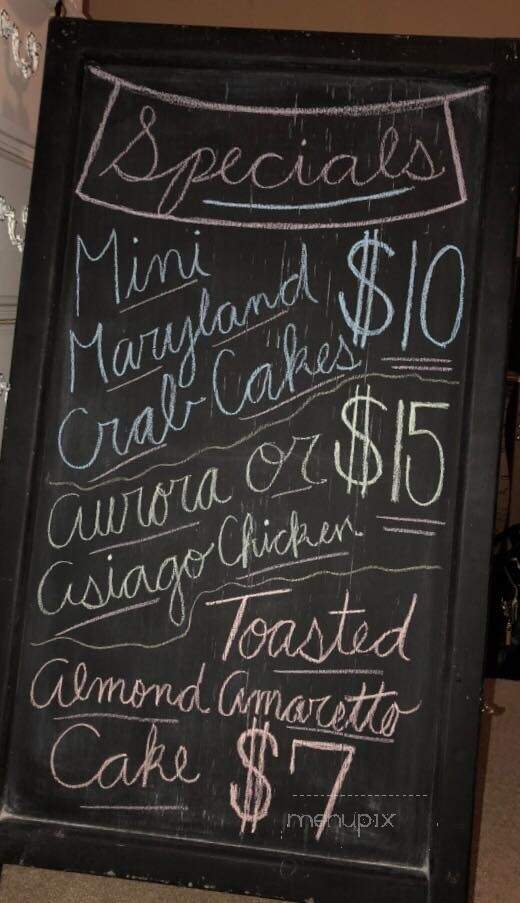 Specials
Mini
Maryland $10
Crab Cakes
Aurora or $15
Asiago Chicken
Toasted
Almond Amaretto
Cake $7
menupix